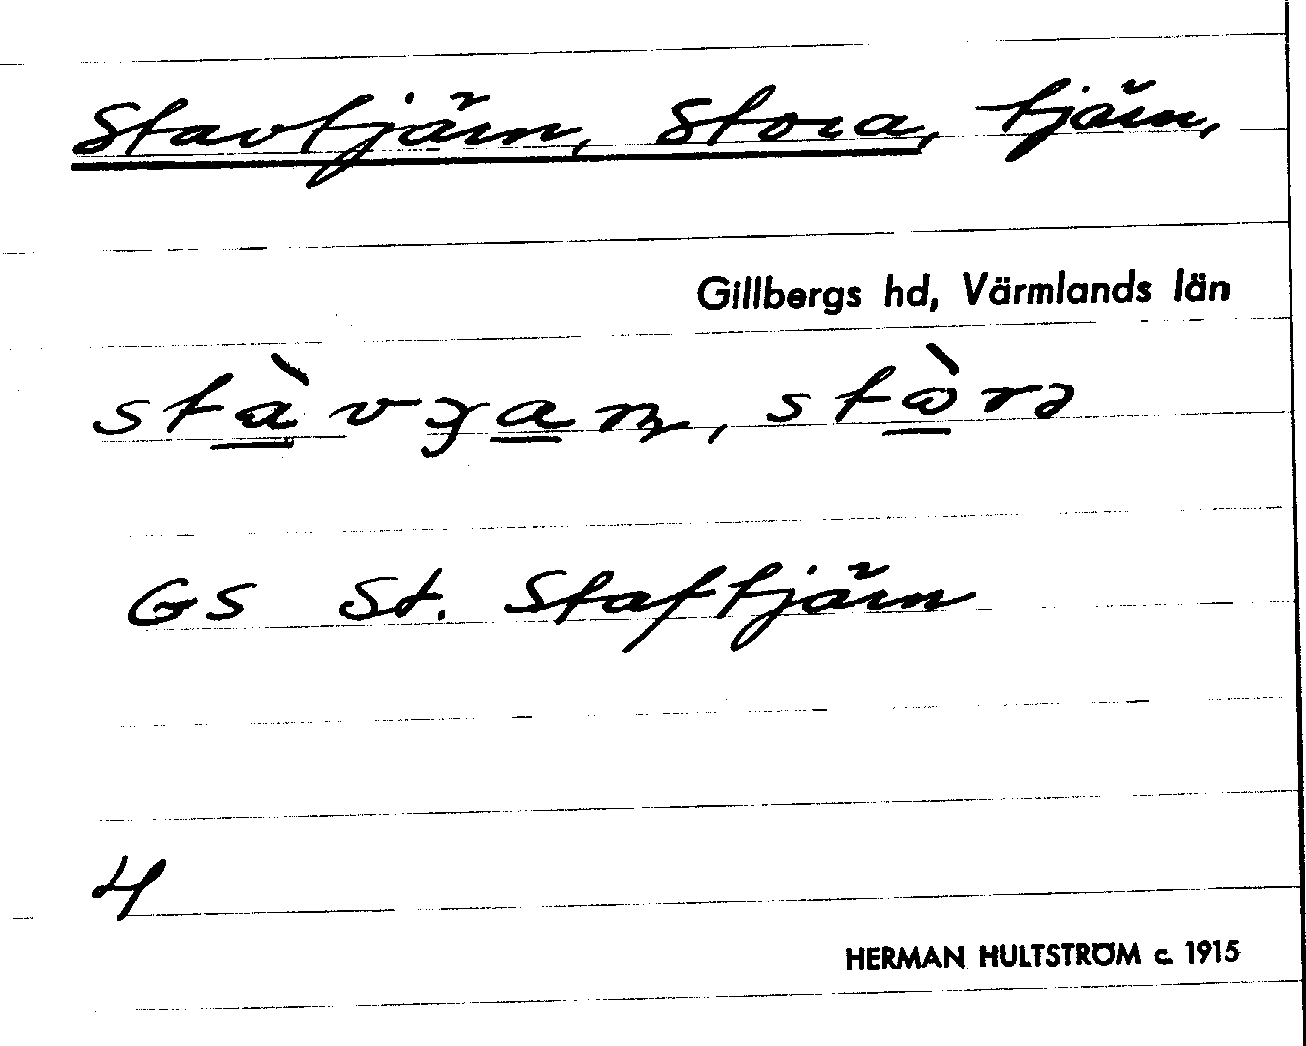 Stavtjärn, Stora, tjärn,
Gillbergs hd, Värmlands län
GS St. Staftjärn
4
HERMAN HULTSTRÖM c. 1915